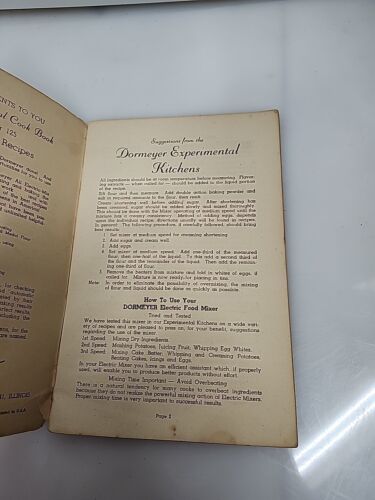 ENTS TO YOU
al Cook Book
125
Recipes
ILLINOIS
Suggestions from the
Dormeyer Experimental
Kitchens
All ingredients should be at room temperature before measuring. Flavor-
ing extracts — when called for — should be added to the liquid portion
of the recipe.
Sift flour and then measure. Add double action baking powder and
salt in required amounts to the flour, then
Cream shortening well before adding sugar. After shortening has
been creamed, sugar should be added slowly and mixed thoroughly.
This should be done with the Mixer operating at medium speed until the
mixture has a creamy consistency. Method of adding eggs, depends
upon the individual recipe; directions usually will be found in recipes.
In general: The following procedure, if carefully followed, should bring
best results:
1. Set mixer at medium speed for creaming shortening.
2. Add sugar and cream well.
3. Add eggs.
4. Set mixer at medium speed. Add one-third of the measured
flour, then one-half of the liquid. To this add a second third of
the flour and the remainder of the liquid. Then add the remain-
ing one-third of flour.
5. Remove the beaters from mixture and fold in whites of eggs, if
called for. Mixture is now ready for placing in tins.
Note: In order to eliminate the possibility of overmixing, the mixing
of flour and liquid should be done as quickly as possible.
How To Use Your
DORMEYER Electric Food Mixer
Tried and Tested
We have tested this mixer in our Experimental Kitchens on a wide vari-
ety of recipes and are pleased to pass on, for your benefit, suggestions
regarding the use of the mixer.
1st Speed: Mixing Dry Ingredients.
2nd Speed: Mashing Potatoes, Juicing Fruit, Whipping Egg Whites.
3rd Speed: Mixing Cake Batter, Whipping and Creaming Potatoes,
Beating Cakes, Icings and Eggs.
In your Electric Mixer you have an efficient assistant which, if properly
used, will enable you to produce better products without effort.
Mixing Time Important — Avoid Overbeating
There is a natural tendency for many cooks to overbeat ingredients
because they do not realize the powerful mixing action of Electric Mixers.
Proper mixing time is very important to successful results.
Page 2